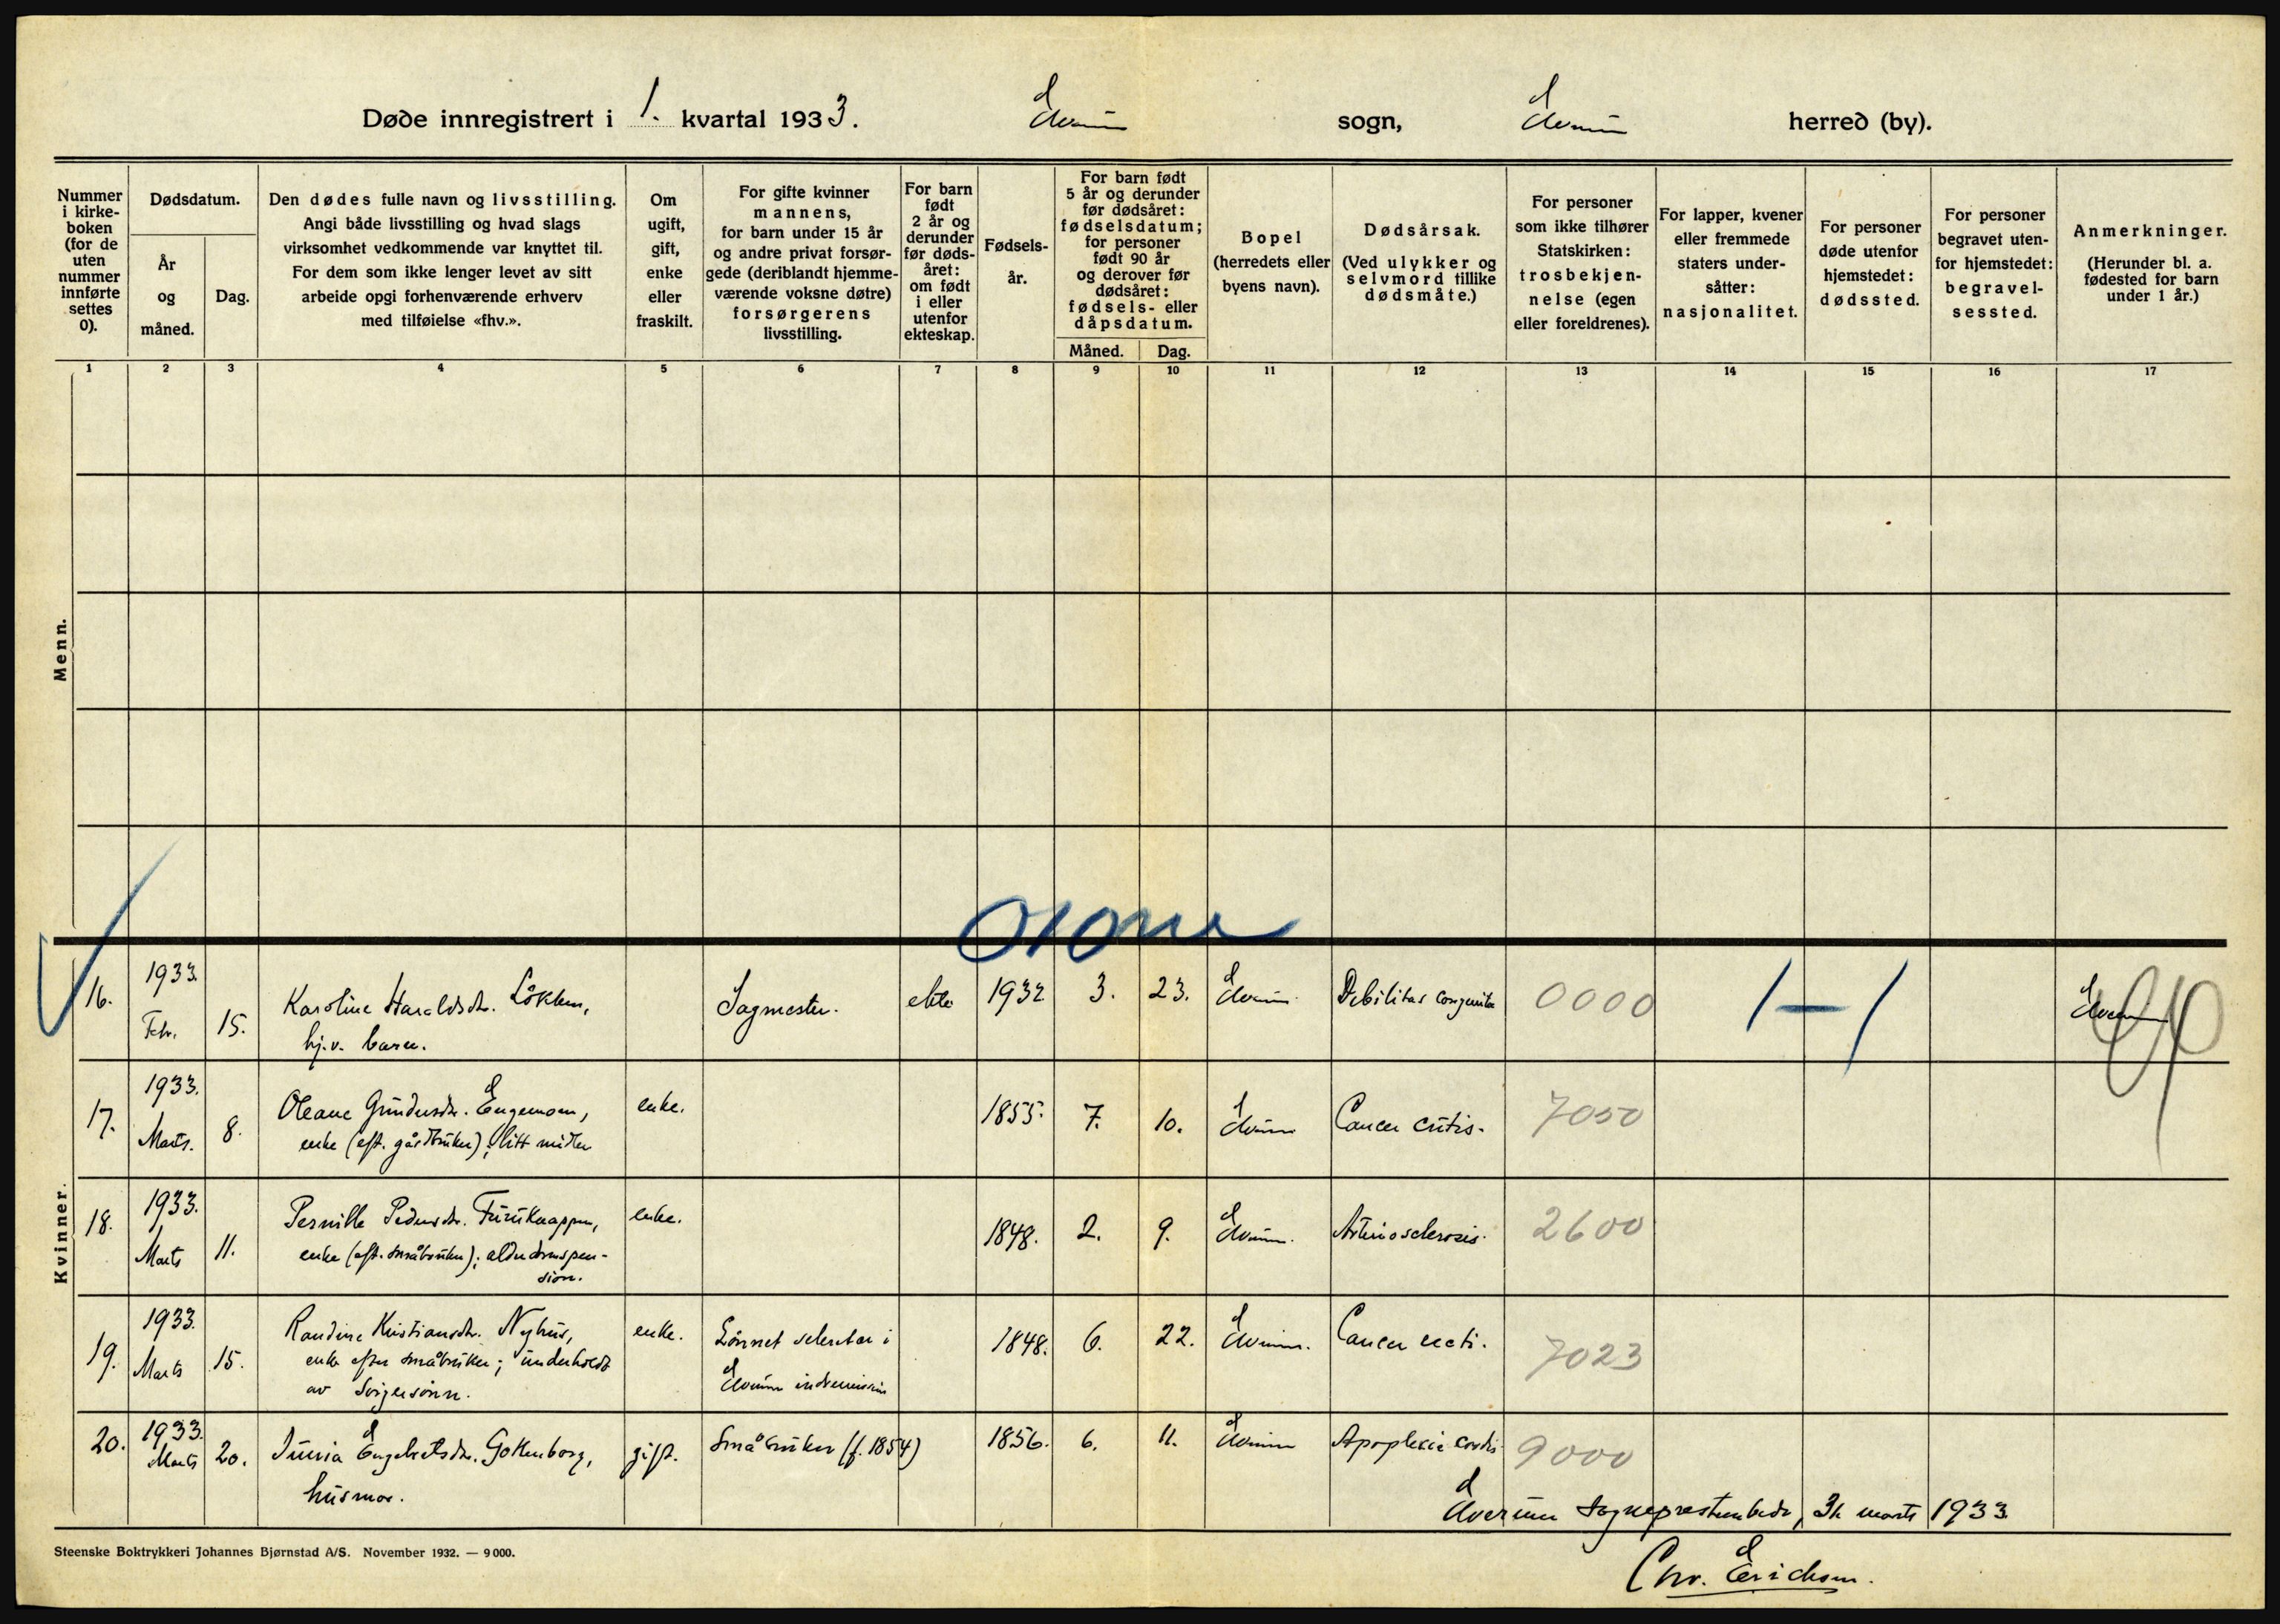 Døde innregistrert i 1. kvartal 1933. Elverum sogn, Elverum herred (by).
Nummer i kirkeboken (for de uten nummer innførte settes 0).
Dødsdatum.
År og måned.
Dag.
Den dødes fulle navn og livsstilling.
Angi både livsstilling og hvad slags
virksomhet vedkommende var knyttet til.
For dem som ikke lenger levet av sitt
arbeide opgi forhenværende erhverv
med tilføielse «fhv.».
Om ugift, gift, enke eller fraskilt.
For gifte kvinner
mannens,
for barn under 15 år
og andre privat forsør-
gede (deriblandt hjemme-
værende voksne døtre)
forsørgerens
livsstilling.
For barn født 2 år og derunder før døds-året: om født i eller utenfor ekteskap.
Fødsels-år.
For barn født
5 år og derunder
før dødsåret:
fødselsdatum;
for personer
født 90 år
og derover før
dødsåret:
fødsels- eller
dåpsdatum.
Måned. Dag.
Bopel
(herredets eller
byens navn).
Dødsårsak.
(Ved ulykker og
selvmord tillike
dødsmåte.)
For personer
som ikke tilhører
Statskirken:
trosbekjen-
nelse (egen
eller foreldrenes).
For lapper, kvener
eller fremmede
staters under-
såtter:
nasjonalitet.
For personer
døde utenfor
hjemstedet:
dødssted.
For personer
begravet uten-
for hjemstedet:
begravel-
sessted.
Anmerkninger.
(Herunder bl. a.
fødested for barn
under 1 år.)
1 2 3 4 5 6 7 8 9 10 11 12 13 14 15 16 17
Menn.
Kvinner.
16. 1933. Febr. 15. Karoline Haraldsdr. Løkken, hj.v. barn. Sagmester. ekte 1932 3. 23. Elverum. Debilitas congenita 0000 1 – 1 Elverum
17. 1933. Marts. 8. Oleane Gundersdr. Engemoen, enke (eft. gårdbruker); litt midler enke. 1855. 7. 10. Elverum Cancer cutis. 7050
18. 1933. Marts 11. Pernille Pedersdr. Furuknappen, enke (eft. småbruker); alderdomspen-
sion. enke. 1848. 2. 9. Elverum. Arteriosclerosis. 2600
19. 1933. Marts 15. Randine Kristiansdr. Nyhus, enke efter småbruker; underholdt av svigersønn. enke. Lønnet sekretær i Elverum 1848. 6. 22. Elverum. Cancer recti. 7023
20. 1933. Marts 20. Engebretsdr. husmor. gift. Småbruker (f. 1854) 1856. 6. 11. Elverum Apoplexia cordis 9000
Elverum sogneprestembede, 31 marts 1933
Chr. Erichsen.
Steenske Boktrykkeri Johannes Bjørnstad A/S. November 1932. — 9000.